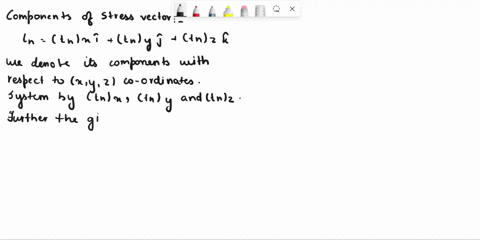 Components of Stress vector:-
tn = (tn)x î + (tn)y ĵ + (tn)z k̂
We denote its components with
respect to (x,y,z) co-ordinates.
System by (tn)x, (tn)y and (tn)z.
Further the gi